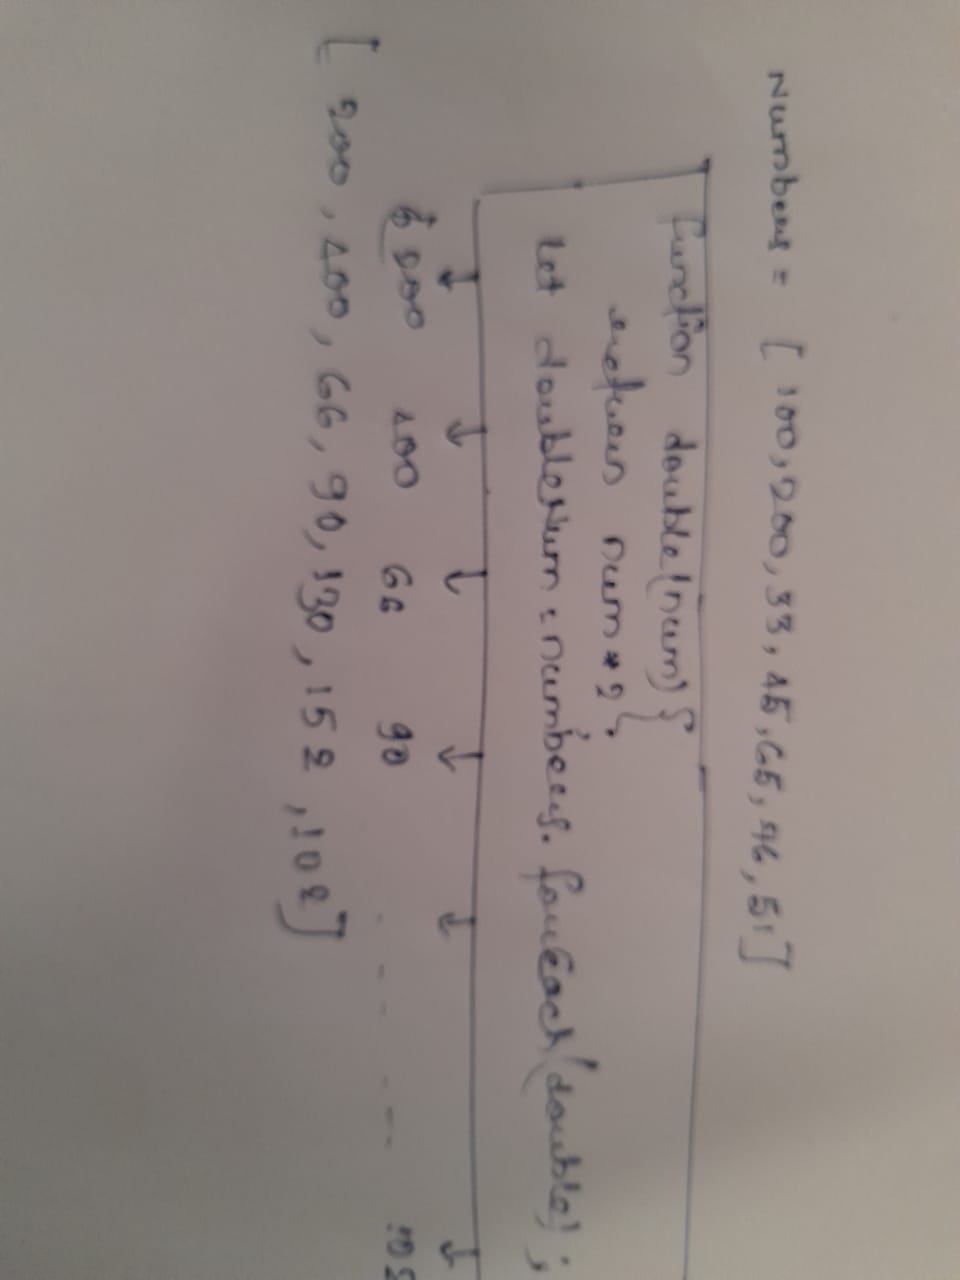 Numbers = [100,200,33,45,65,76,51]
function double(num) {
return num * 2;}
Let doubleNum = numbers. forEach(double);
200 400 66 90 - - - - 102
[200,400,66,90,130,152,102]